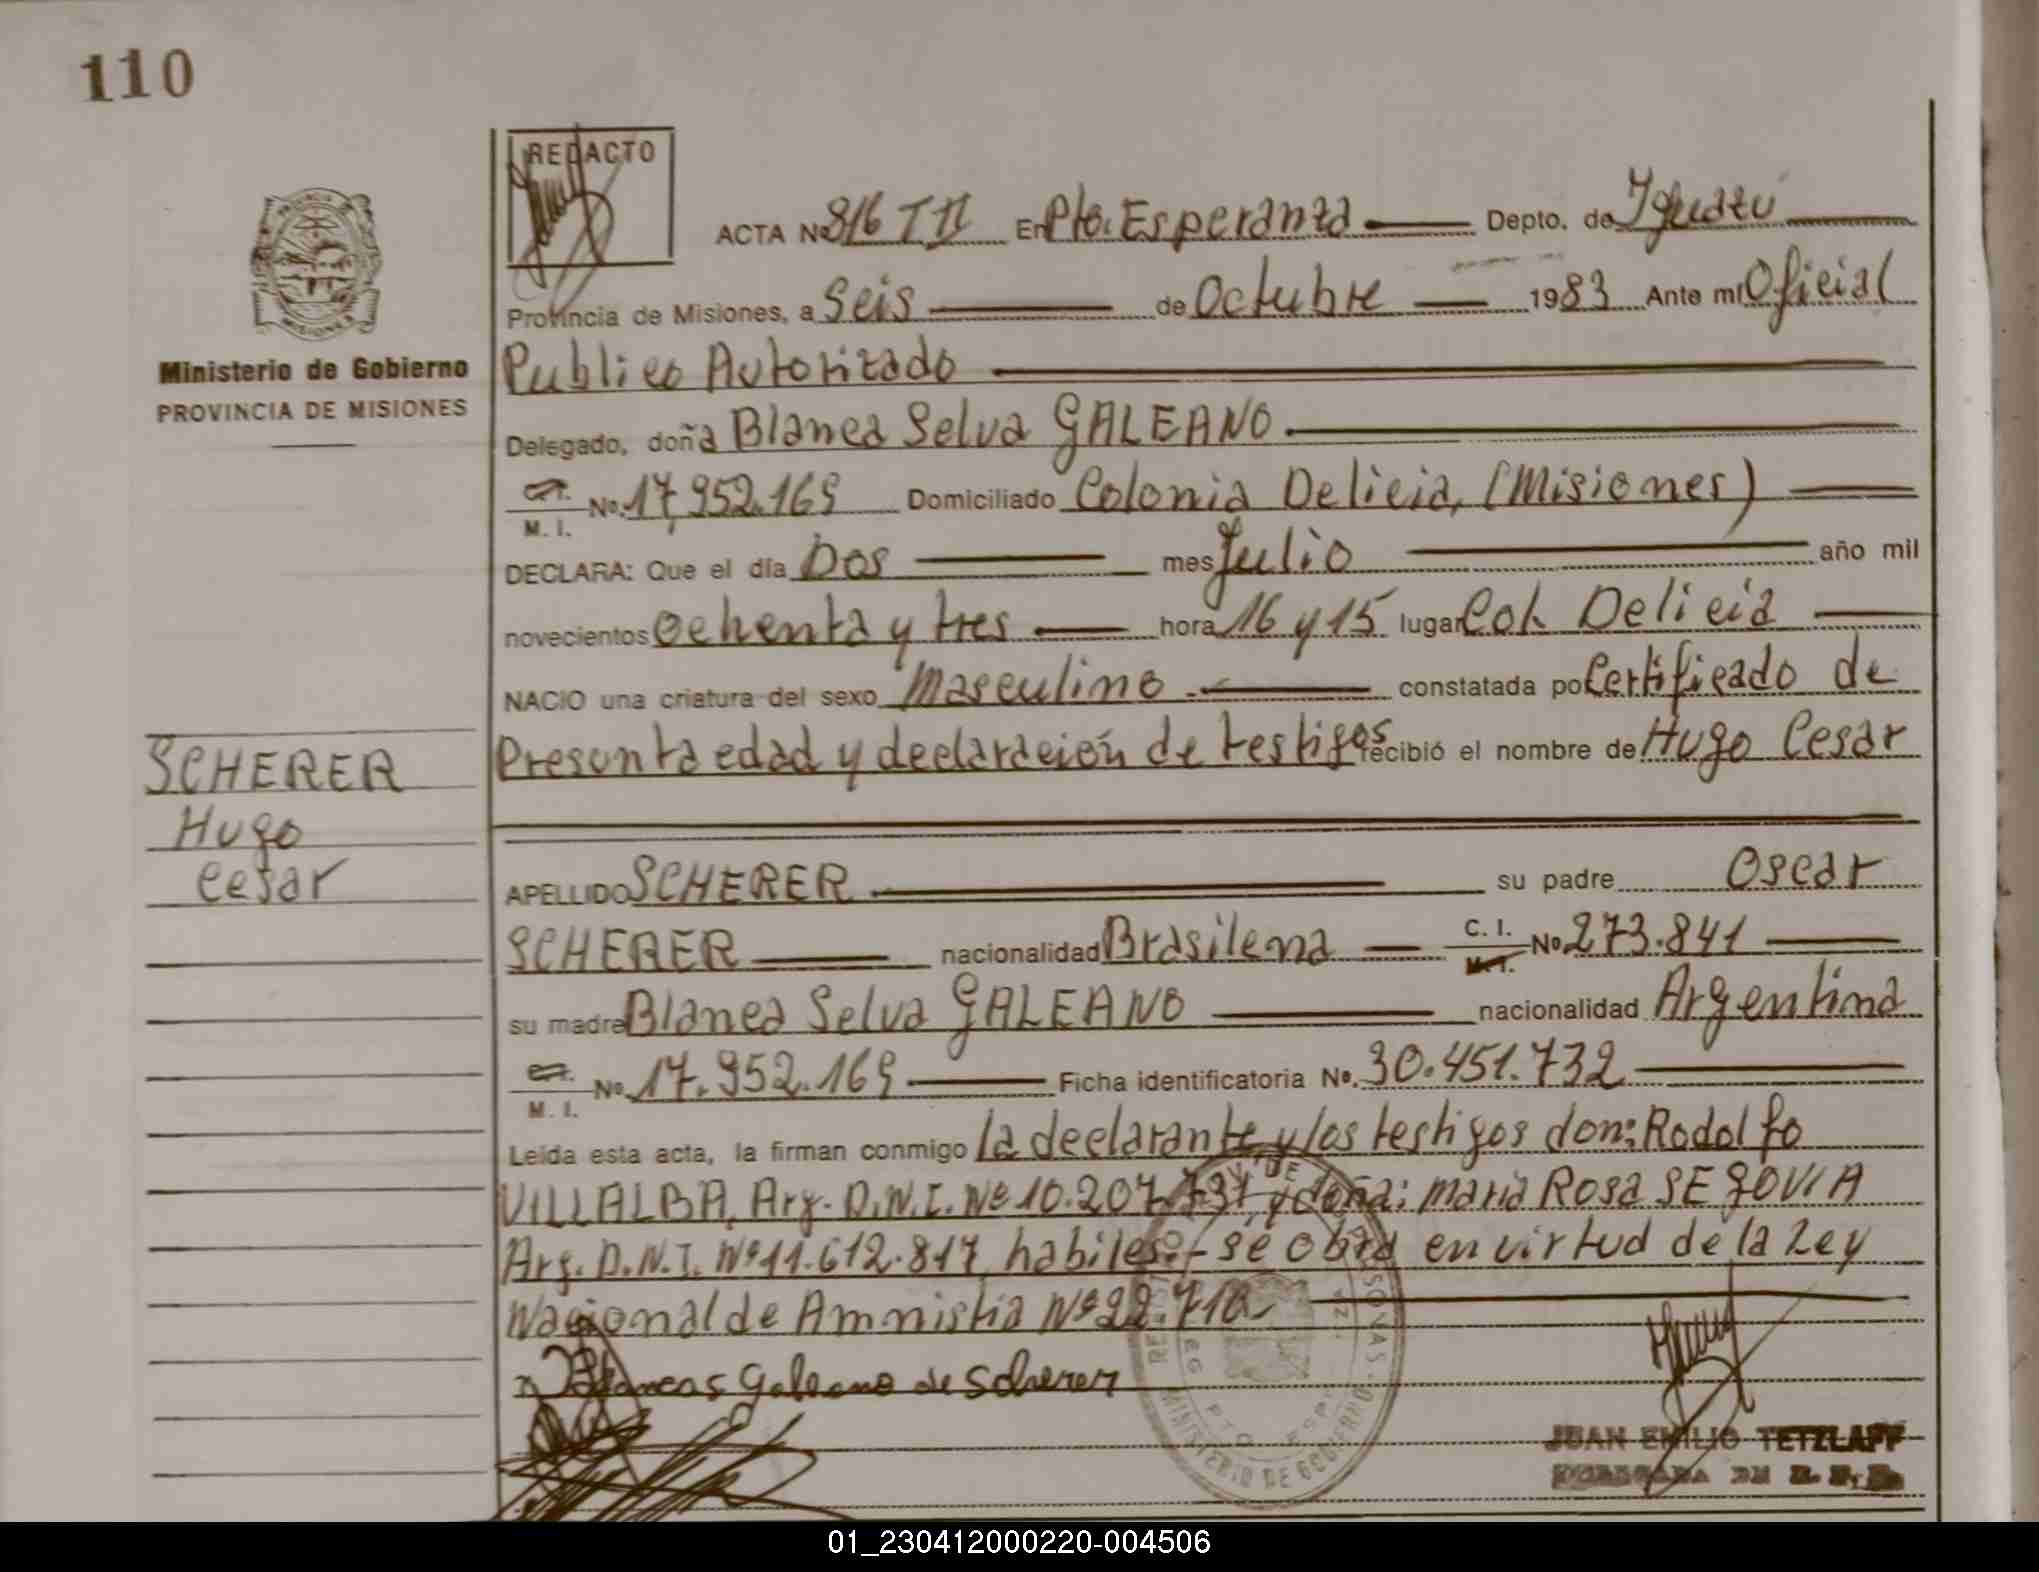 110
REDACTO
ACTA Nº 816 TII En Pto. Esperanza Depto. de Iguazu
Provincia de Misiones, a Seis de Octubre 1983 Ante mi Oficial
Ministerio de Gobierno
PROVINCIA DE MISIONES
Publico Autorizado
Delegado, doña Blanca Selva GALEANO
C.I. M. I. No. 17.952.169 Domiciliado Colonia Delicia, (Misiones)
DECLARA: Que el día Dos mes Julio año mil
novecientos ochenta y tres hora 16 y 15 lugar Col. Delicia
NACIO una criatura del sexo Masculino constatada por Certificado de
Presunta edad y declaración de testigos recibió el nombre de Hugo Cesar
SCHERER
Hugo
Cesar
APELLIDO SCHERER su padre Oscar
SCHERER nacionalidad Brasilena C. I. M.I. Nº 273.841
su madre Blanca Selva GALEANO nacionalidad Argentina
C.I. M. I. No. 17.952.169 Ficha identificatoria Nº. 30.451.732
Leida esta acta, la firman conmigo la declarante y los testigos don: Rodolfo
VILLALBA, Arg. D.N.I. Nº 10.207.737 y doña: Maria Rosa SEGOVIA
Arg. D.N.I. Nº 11.612.817 habiles.- se obra en virtud de la Ley
Nacional de Amnistia Nº 22.710
Galeano de Scherer
MINISTERIO DE GOBIERNO
JUAN EMILIO TETZLAFF
01_230412000220-004506